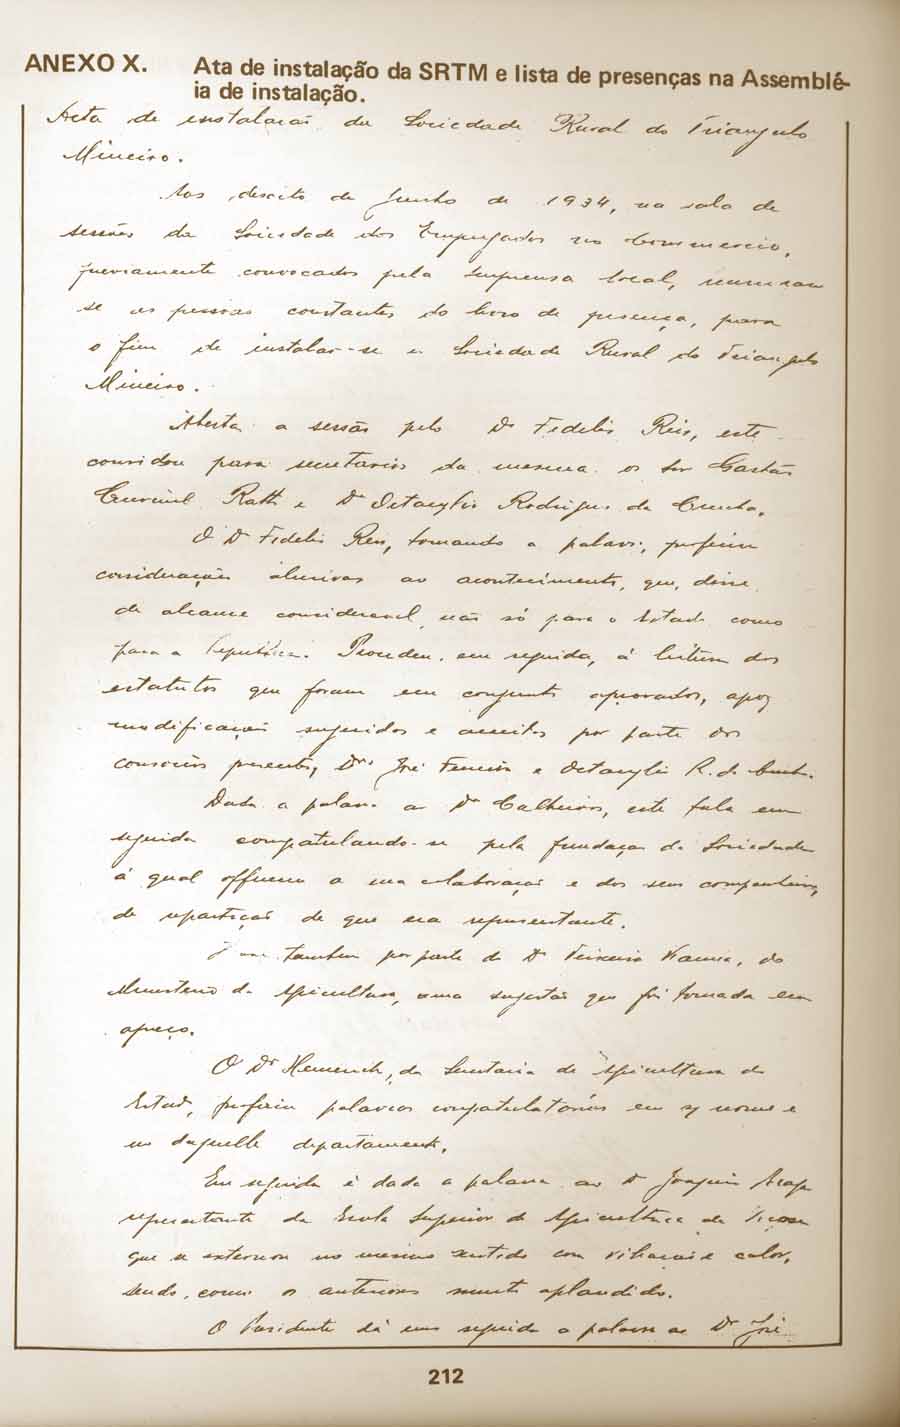 ANEXO X. Ata de instalação da SRTM e lista de presenças na Assemblé-
ia de instalação.
Acta de instalação da Sociedade Rural do Triangulo
Mineiro.
Aos desoito de Junho de 1934, na sala de
sessões da Sociedade dos Empregados no Commercio,
previamente convocados pela imprensa local, reuniram
se as pessoas constantes do livro de presença, para
o fim de instalar-se a Sociedade Rural do Triangulo
Mineiro.
Aberta a sessão pelo Dr Fidelis Reis, este
convidou para secretarios da mesma os Snr Gastão
Rath e Dr Octacylio Rodrigues da Cunha.
O Dr Fidelis Reis, tomando a palavra, proferiu
considerações alusivas ao acontecimento, que, disse,
de alcance consideravel, não só para o Estado como
para a Republica. Procedeu, em seguida, á leitura dos
estatutos que foram em conjunto aprovados, apoz
modificações sugeridas e aceitas por parte dos
consocios presentes, Drs José Ferreira e Octacylio R. da Cunha.
Dada a palavra ao Dr Calheiros, este fala em
seguida congratulando-se pela fundação da Sociedade
á qual offerece a sua colaboração e dos seus companheiros,
da repartição de que era representante.
tambem por parte do Dr Teixeira Vianna, do
Ministerio da Agricultura, uma sugestão que foi tomada em
apreço.
O Dr , da Secretaria de Agricultura do
Estado, proferiu palavras congratulatorias em seu nome e
no daquelle departamento.
Em seguida é dada a palavra ao Dr Joaquim
representante da Escola Superior de Agricultura de Viçosa
que se externou no mesmo sentido com vibração e calor,
sendo, como os anteriores muito aplaudido.
O Presidente dá em seguida a palavra ao Dr José
212